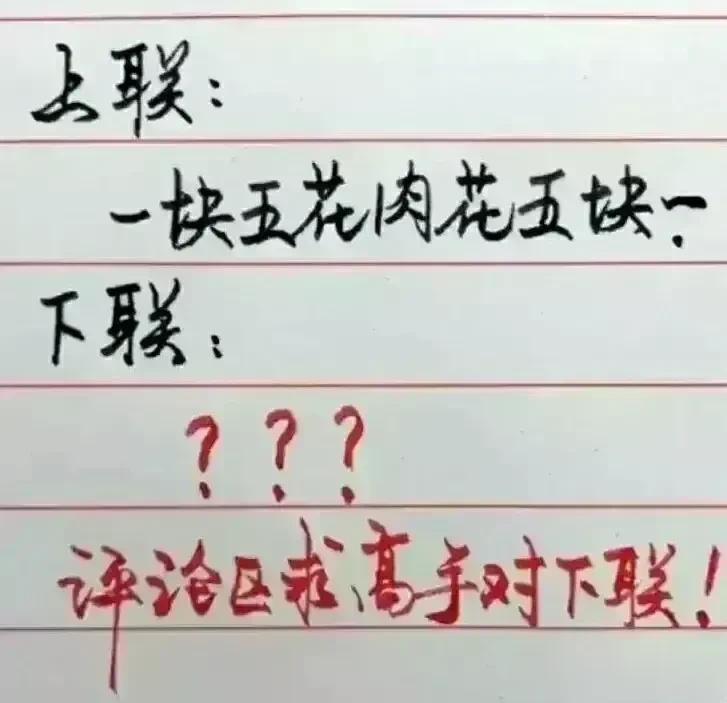 上联:
一块五花肉花五块一.
下联:
???
评论区求高手对下联!